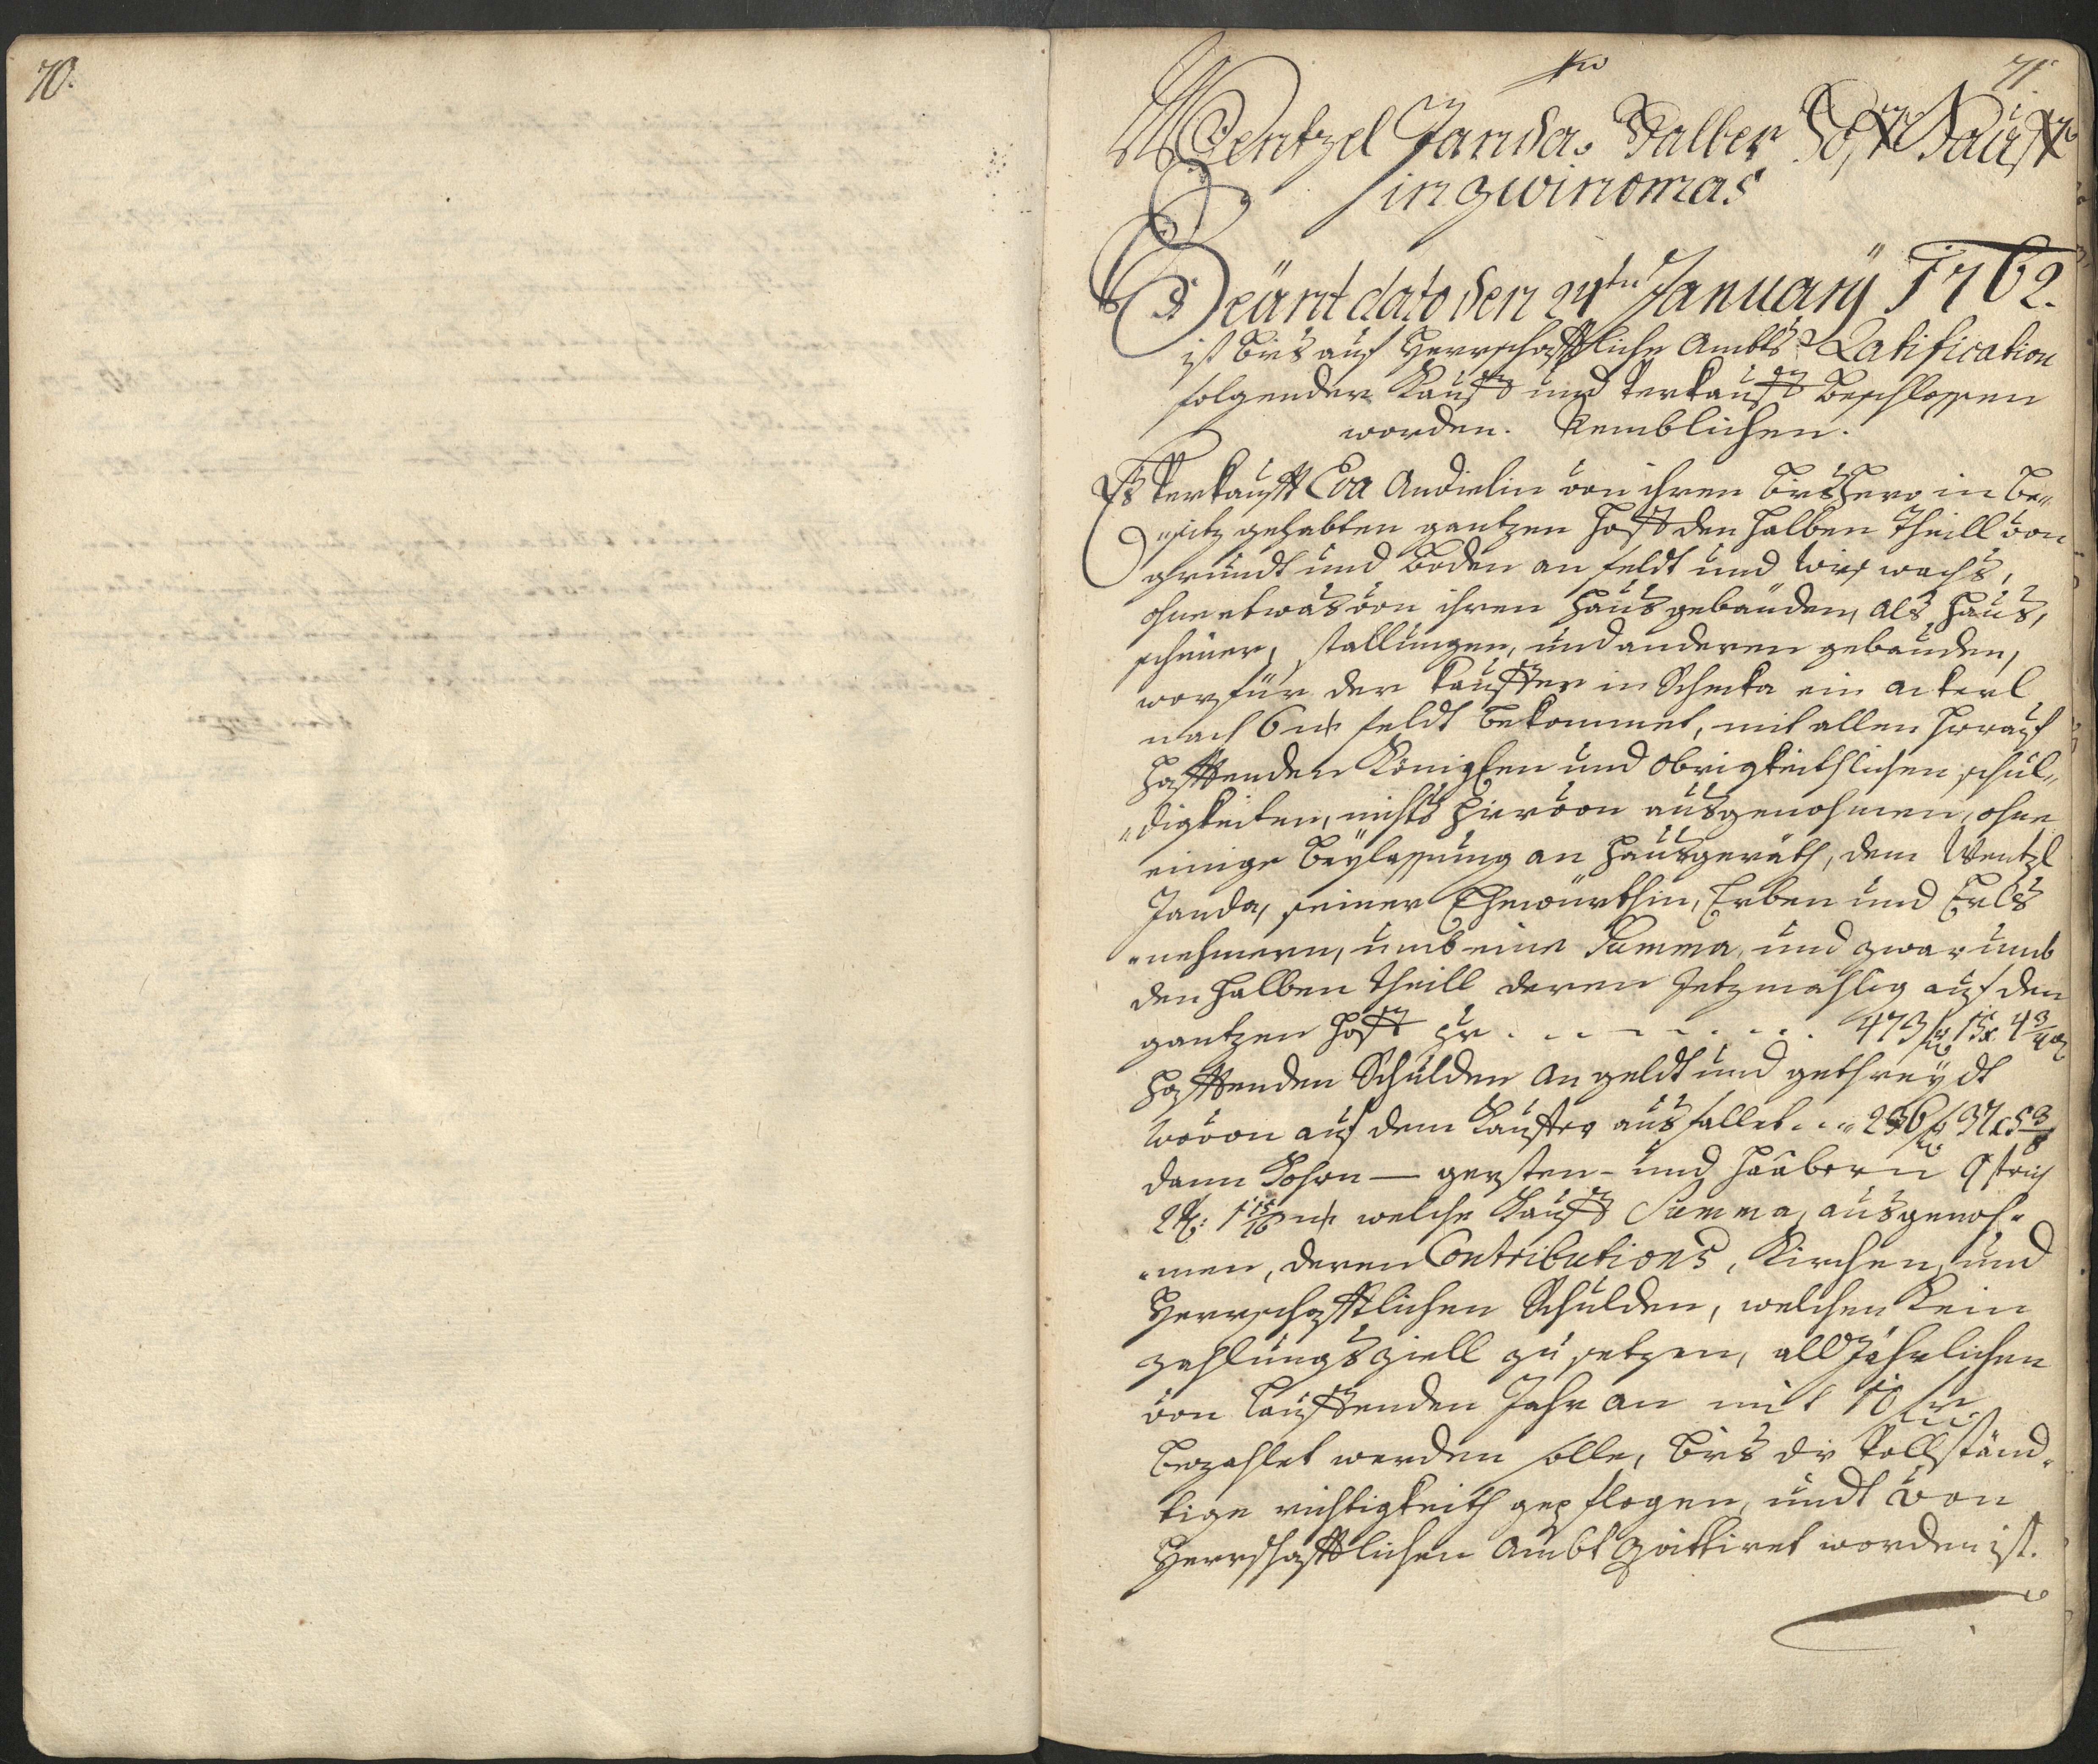 70.
71
Wentzel Janda. Halber Hoff Kauff
in Zwinomas
Heünt dato den 24ten Januarÿ 1762.
ist bies auf Herrschafftliche Ambts Ratification
folgender Kauff und Verkauff beschlossen
worden. Nemblichen.
Es Verkaufft Eva Andielin von ihren bieshero in Be„
„sitz gehabten gantzen Hoff den halben Theill von
grundt und boden an feldt und wies wachs,
ohne etwas von ihren Haus gebäuden, als Haus,
scheüer, stallungen, und anderen gebäuden,
worfür der Kauffer in Schecka ein ackerl
nach 6 feldt bekommet, mit allen hierauf
hafftenden Königlen und obrigkeithlichen schul„
„digkeiten, nichts hiervon ausgenohmen, ohne
einige Beÿlassung an Hausgeräth, dem Wentzl
Janda, seiner Ehewürthin, Erben und Erbs
„nehmern, umb eine Summa, und zwar umb
den halben Theill deren Jetzmahlig auf den
gantzen Hoff pr . . . . . . . . 473 f 15 x 4 3/4
hafftenden Schulden an geldt und gethreÿdt
wovon auf dem Kauffer ausfallet . . . 236 f 37 x 5 3/8
dann Kohrn — gersten - und Haabern 9 strich
2 1 15/16 welche Kauff Summa, ausgenoh„
„men, deren Contributions, Kirchen, und
Herrschafftlichen Schulden, welchen Kein
zahlungs ziell zu setzen, all Jährlichen
von lauffenden Jahr an mit 10 f
bezahlet werden solle, bies die Vollständ„
tige richtigkeith gepflogen, undt von
Herrschafftlichen Ambt quittiret worden ist.